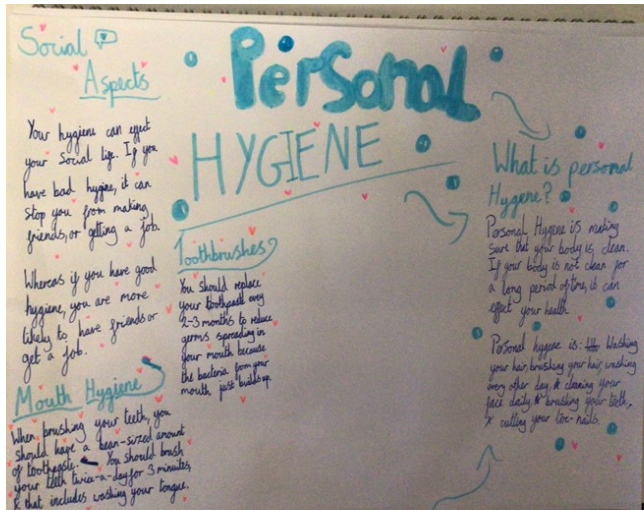 Personal
HYGIENE
Social
Aspects
Your hygiene can effect
your Social life. If you
have bad hygine, it can
stop you from making
friends, or getting a job.
Whereas if you have good
hygiene, you are more
likely to have friends or
get a job.
Mouth Hygiene
When brushing your teeth, you
should have a bean-sized amount
of toothpaste. You should brush
your teeth twice-a-day for 3 minuites,
& that includes washing your tongue.
Toothbrushes
You should replace
your toothpaste evry
2-3 months to reduce
germs spreading in
your mouth because
the bacteria from your
mouth just builds up.
What is personal
Hygene?
Personal Hygene is making
Sure that your body is clean.
If your body is not clean for
a long period of time, it can
effect your health.
Personal hygiene is: Washing
your hair, brushing your hair, washing
every other day, & cleaning your
face daily, & brushing your teeth,
& cutting your toe-nails.